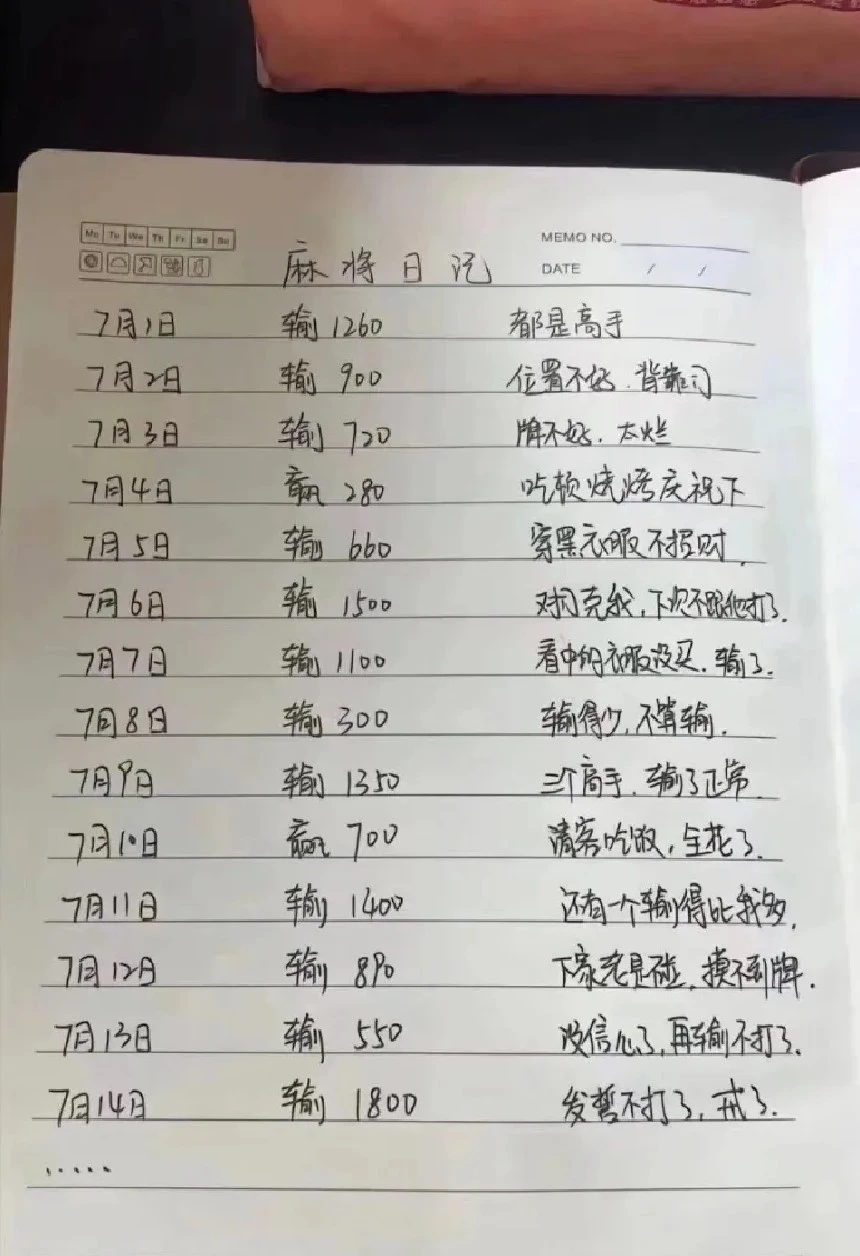 Mo Tu We Th Fr Sa Su
MEMO NO.
麻将日记
DATE / /
7月1日 输1260 都是高手
7月2日 输 900 位置不好.背靠门
7月3日 输 720 牌不好.太烂
7月4日 赢 280 吃顿烧烤庆祝下
7月5日 输 660 穿黑衣服不招财.
7月6日 输 1500 对门克我,下次不跟他打了.
7月7日 输 1100 看中的衣服没买.输了.
7月8日 输 300 输得少,不算输.
7月9日 输 1350 三个高手.输了正常.
7月10日 赢 700 请客吃饭,全花了.
7月11日 输 1400 还有一个输得比我多,
7月12日 输 890 下家老是碰,摸不到牌.
7月13日 输 550 没信心了,再输不打了.
7月14日 输 1800 发誓不打了,戒了.
.....